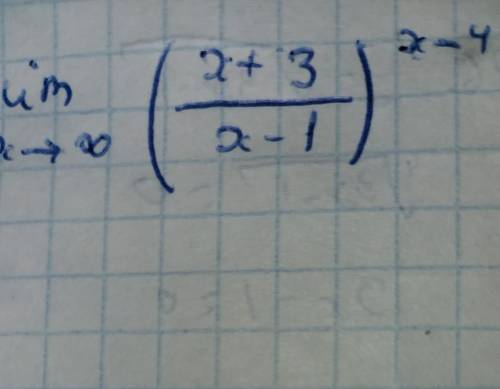 lim x→∞ ((x + 3)/(x - 1))^(x - 4)